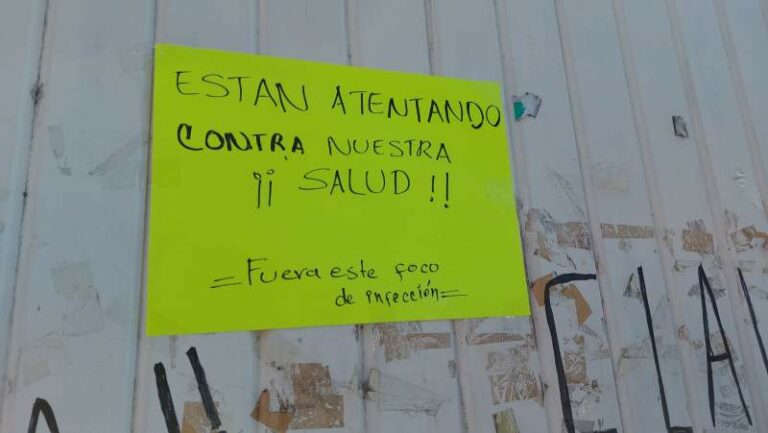 ESTAN ATENTANDO
CONTRA NUESTRA
¡¡ SALUD !!
=Fuera este foco
de infección=
CLA